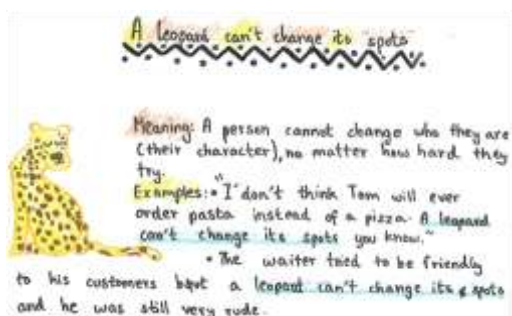 A leopard can't change its spots
Meaning: A person cannot change who they are
(their character), no matter how hard they
try.
Examples: • "I don't think Tom will ever
order pasta instead of a pizza. A leopard
can't change its spots you know."
• The waiter tried to be friendly
to his customers but a leopard can't change its spots
and he was still very rude.